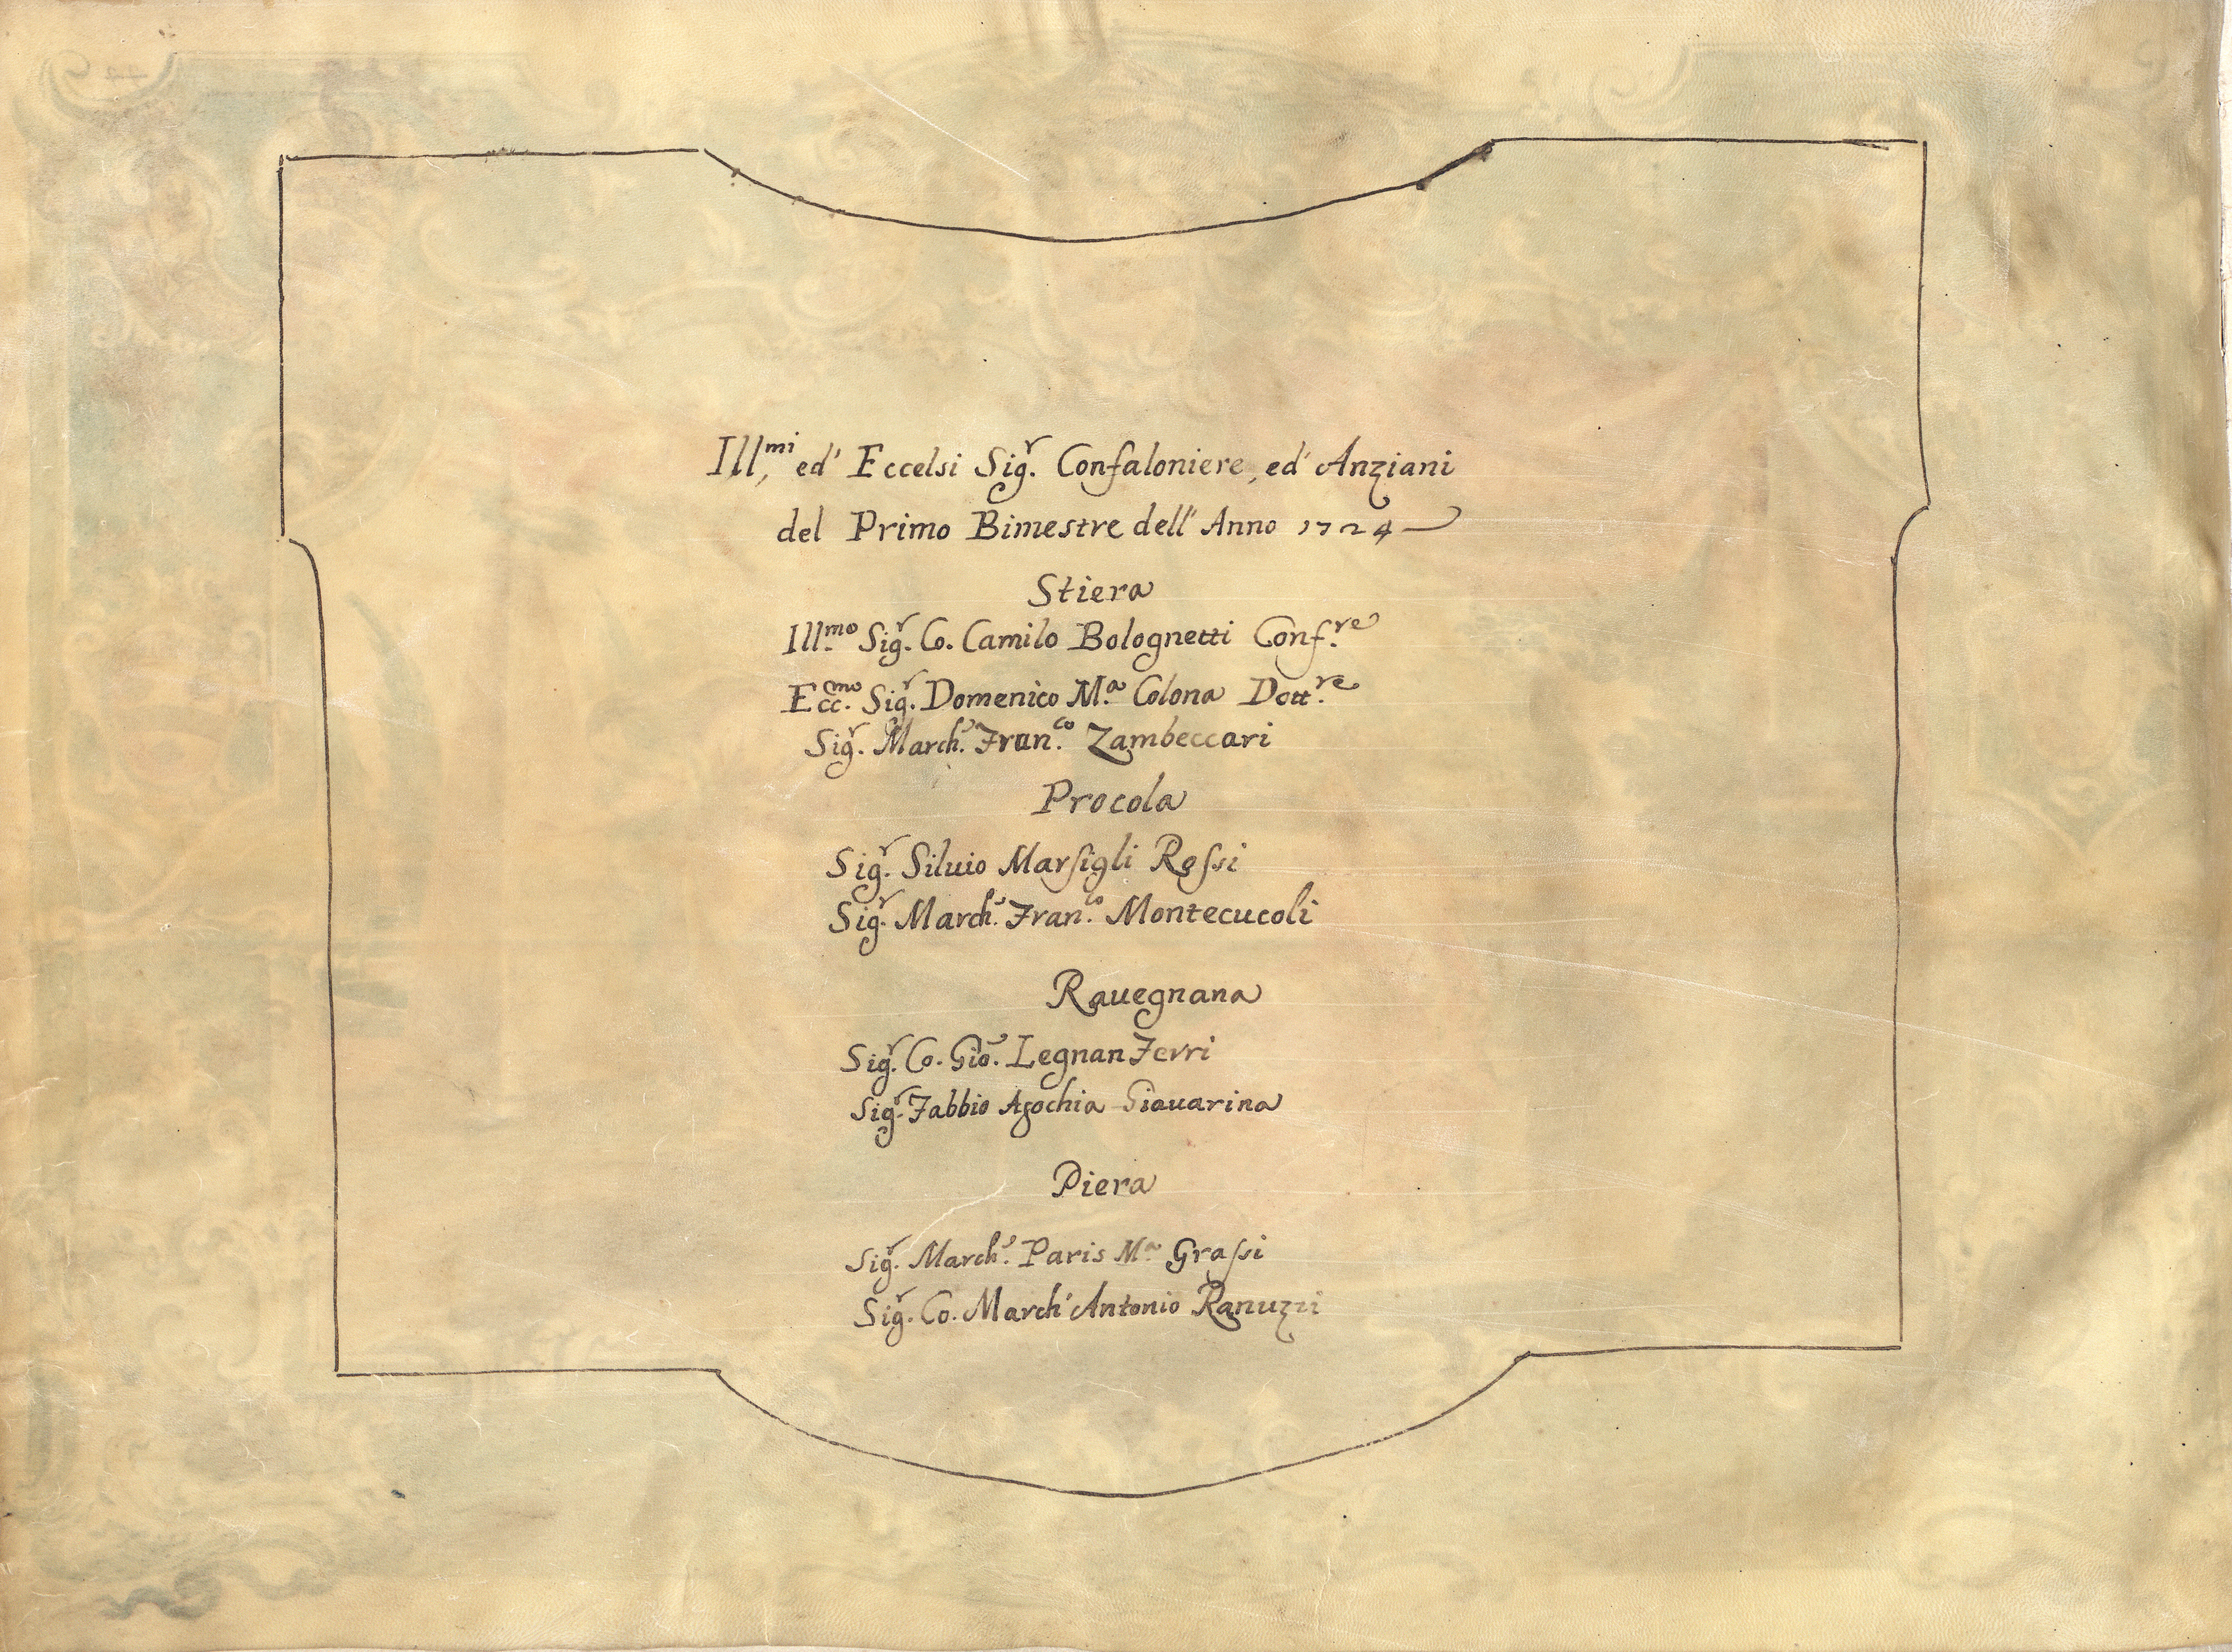 Ill.mi ed' Eccelsi Sig.r Confaloniere, ed' Anziani
del Primo Bimestre dell' Anno 1724
Stiera
Ill.mo Sig.r Co. Camilo Bolognetti Conf.re
Ecc.mo Sig.r Domenico M.a Colona Dott.re
Sig.r March.e Fran.co Zambeccari
Procola
Sig.r Siluio Marsigli Rossi
Sig.r March.e Fran.co Montecucoli
Rauegnana
Sig.r Co. Gio. Legnan Ferri
Sig.r Fabbio Agochia Giauarina
Piera
Sig.r March.e Paris M.a Grassi
Sig.r Co. March' Antonio Ranuzzi